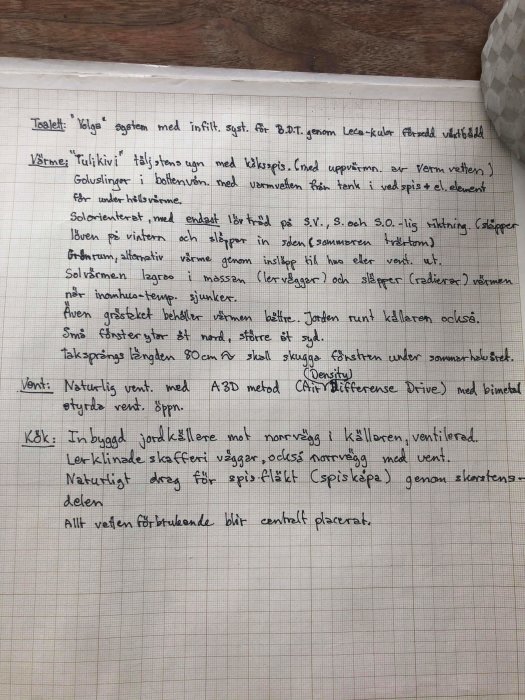 Toalett: "Volga" system med infilt. syst. för B.D.T. genom Leca-kulor försedd växtbädd
Värme: "Tulikivi" täljstensugn med köksspis. (med uppvärmn. av varmvatten)
Golvslingor i bottenvån. med varmvatten från tank i vedspis + el. element
för underhållsvärme.
Solorienterat, med endast lövträd på S.V., S. och S.O.-lig riktning. (släpper
löven på vintern och släpper in solen (sommaren tvärtom)
Grönrum, alternativ värme genom insläpp til hus eller vent. ut.
Solvärmen lagras i massan (lerväggar) och släpper (radierar) värmen
när inomhus-temp. sjunker.
Även grästaket behåller värmen bättre. Jorden runt källaren också.
Små fönsterytor åt nord, större åt syd.
Taksprångs längden 80cm ≈ skall skugga fönstren under sommarhalvåret.
Vent: Naturlig vent. med A3D metod (Air (Density) Differense Drive) med bimetal
styrda vent. öppn.
Kök: Inbyggd jordkällare mot norrvägg i källaren, ventilerad.
Lerklinade skafferi väggar, också norrvägg med vent.
Naturligt drag för spisfläkt (spiskåpa) genom skorstens-
delen
Allt vatten förbrukande blir centralt placerat.